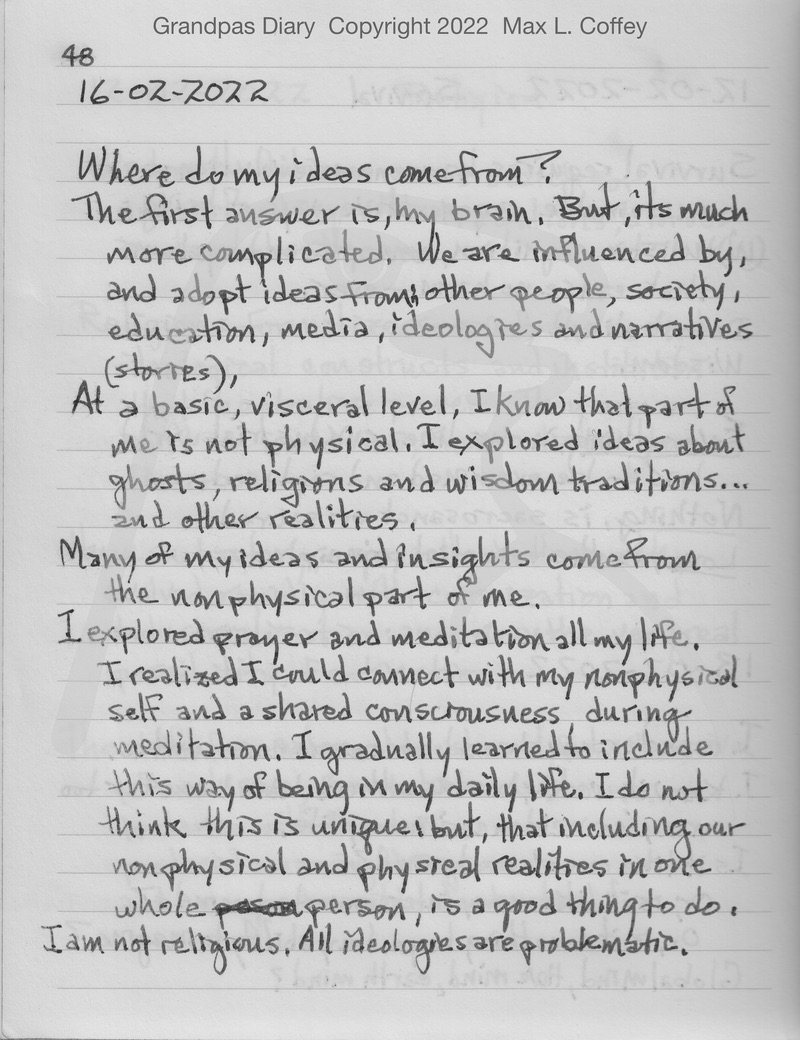 Grandpas Diary Copyright 2022 Max L. Coffey
48
16-02-2022
Where do my ideas come from?
The first answer is, my brain. But, its much
more complicated. We are influenced by,
and adopt ideas from, other people, society,
education, media, ideologies and narratives
(stories),
At a basic, visceral level, I know that part of
me is not physical. I explored ideas about
ghosts, religions and wisdom traditions...
and other realities.
Many of my ideas and insights come from
the nonphysical part of me.
I explored prayer and meditation all my life.
I realized I could connect with my nonphysical
self and a shared consciousness, during
meditation. I gradually learned to include
this way of being in my daily life. I do not
think this is unique! but, that including our
nonphysical and physical realities in one
whole person, is a good thing to do.
I am not religious. All ideologies are problematic.